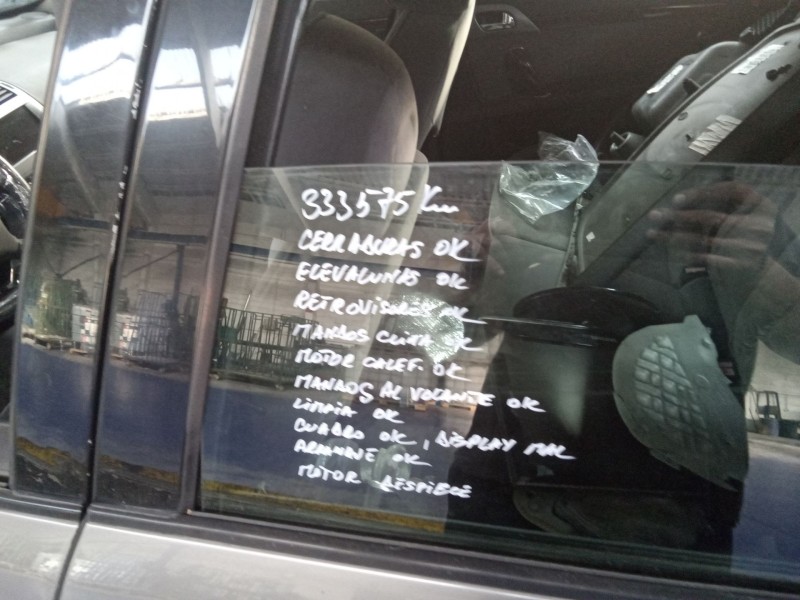 333575 Km
CERRADURAS OK
ELEVALUNAS OK
RETROVISORES OK
MANDOS CLIMA OK
MOTOR CALEF. OK
MANDOS AL VOLANTE OK
LIMPIA OK
CUADRO OK, DISPLAY MAL
ARRANQUE OK
MOTOR DESPIECE